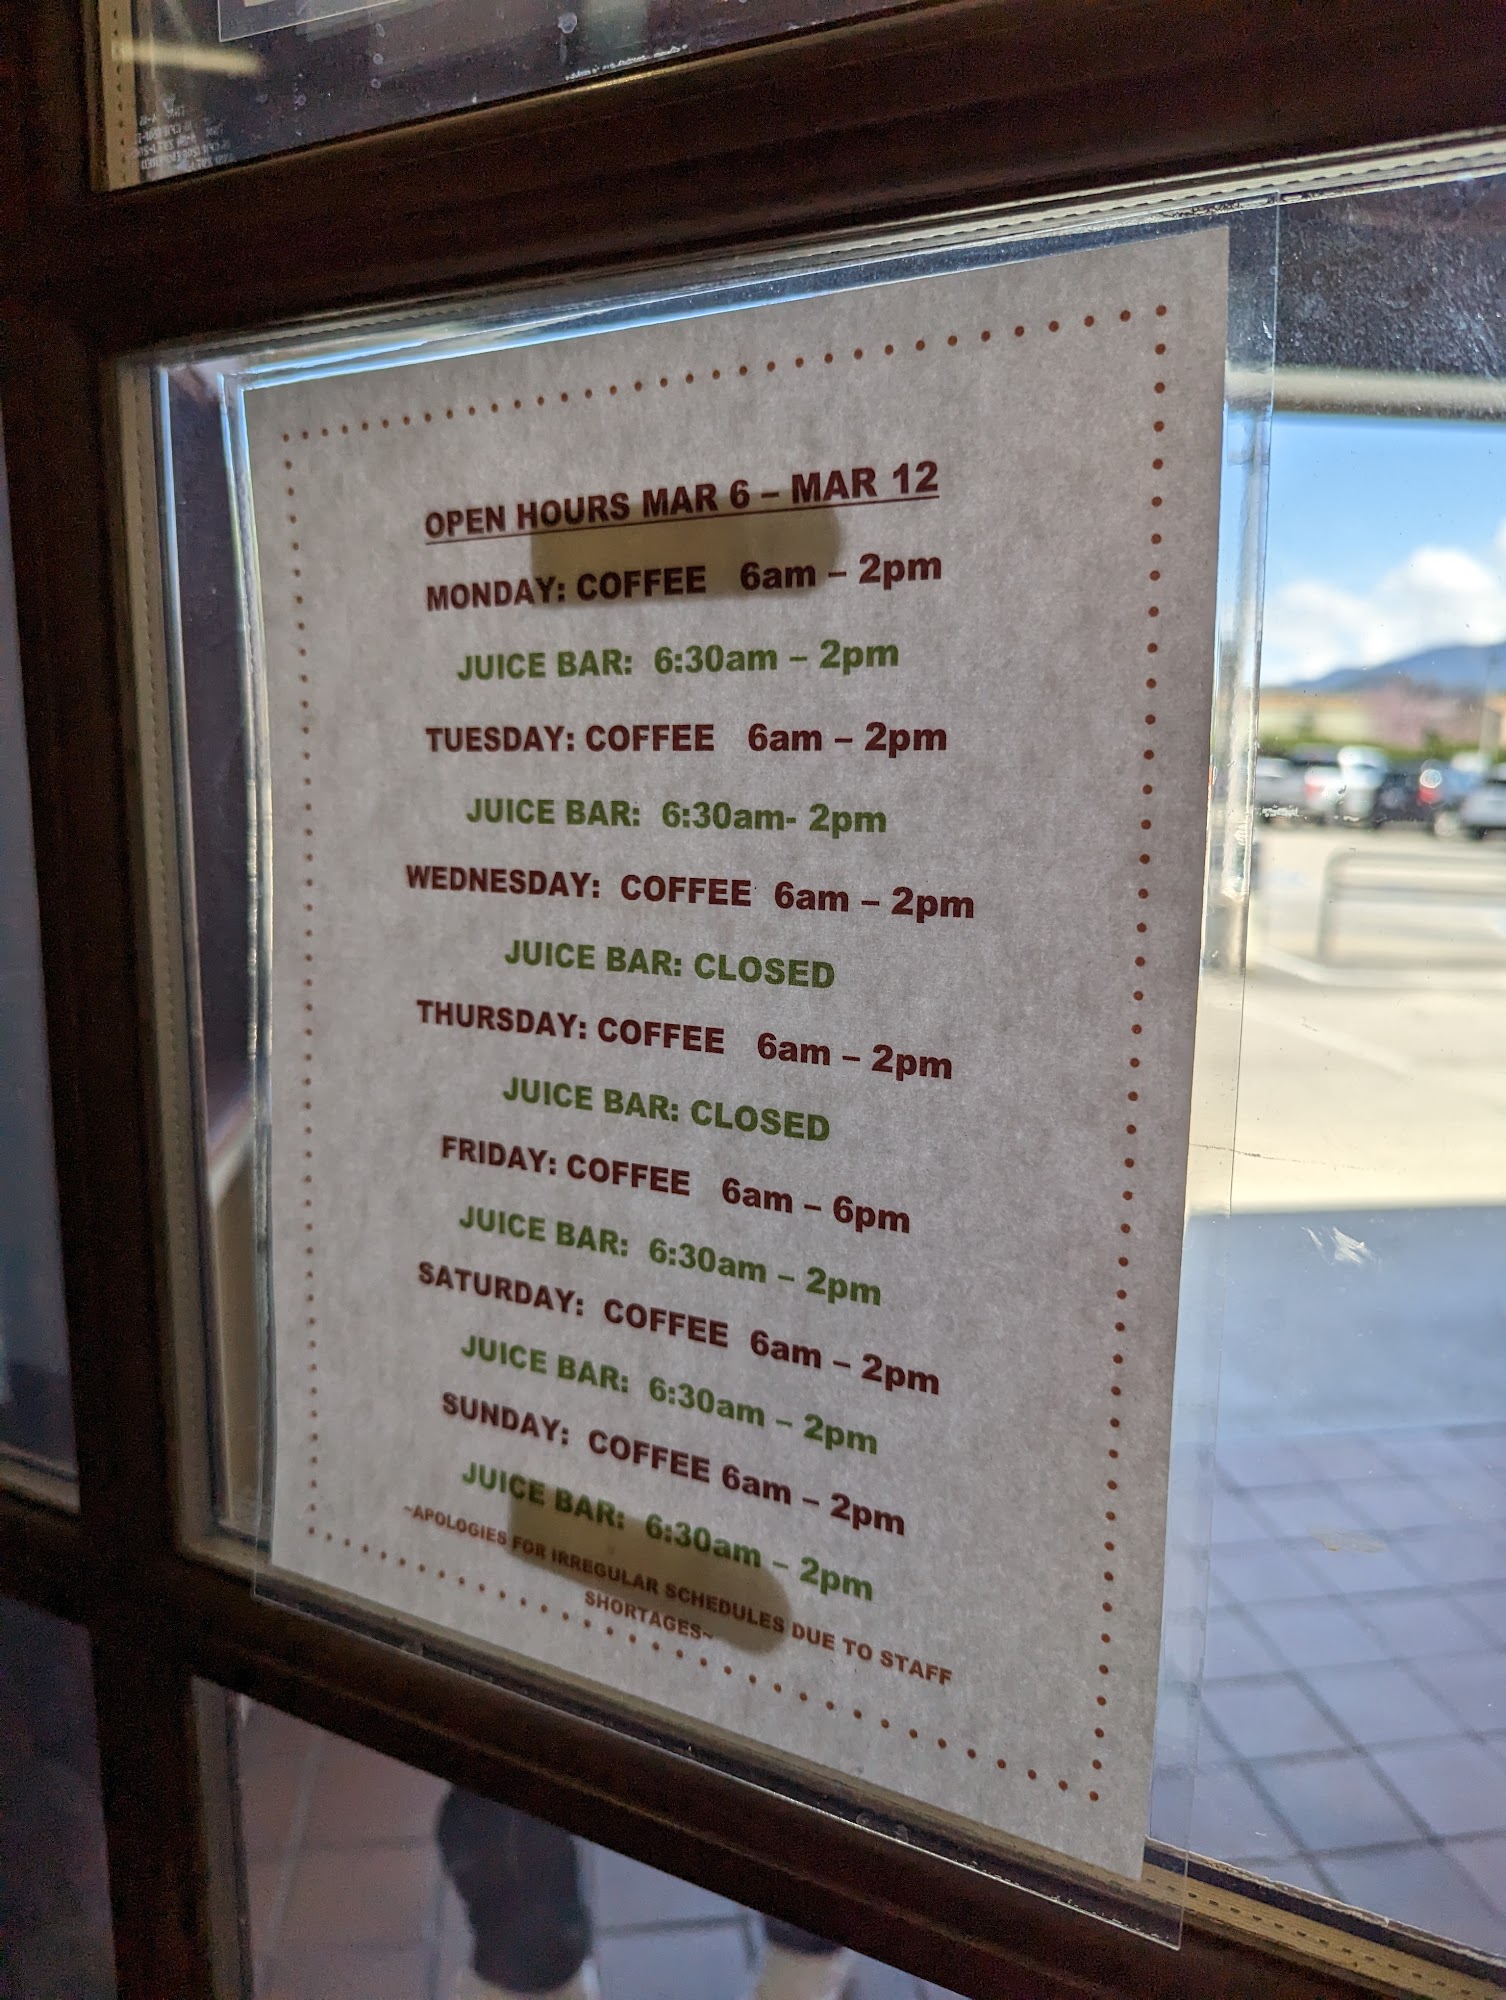 OPEN HOURS MAR 6 – MAR 12
MONDAY: COFFEE 6am – 2pm
JUICE BAR: 6:30am – 2pm
TUESDAY: COFFEE 6am – 2pm
JUICE BAR: 6:30am- 2pm
WEDNESDAY: COFFEE 6am – 2pm
JUICE BAR: CLOSED
THURSDAY: COFFEE 6am – 2pm
JUICE BAR: CLOSED
FRIDAY: COFFEE 6am – 6pm
JUICE BAR: 6:30am – 2pm
SATURDAY: COFFEE 6am – 2pm
JUICE BAR: 6:30am – 2pm
SUNDAY: COFFEE 6am – 2pm
JUICE BAR: 6:30am – 2pm
~APOLOGIES FOR IRREGULAR SCHEDULES DUE TO STAFF
SHORTAGES~